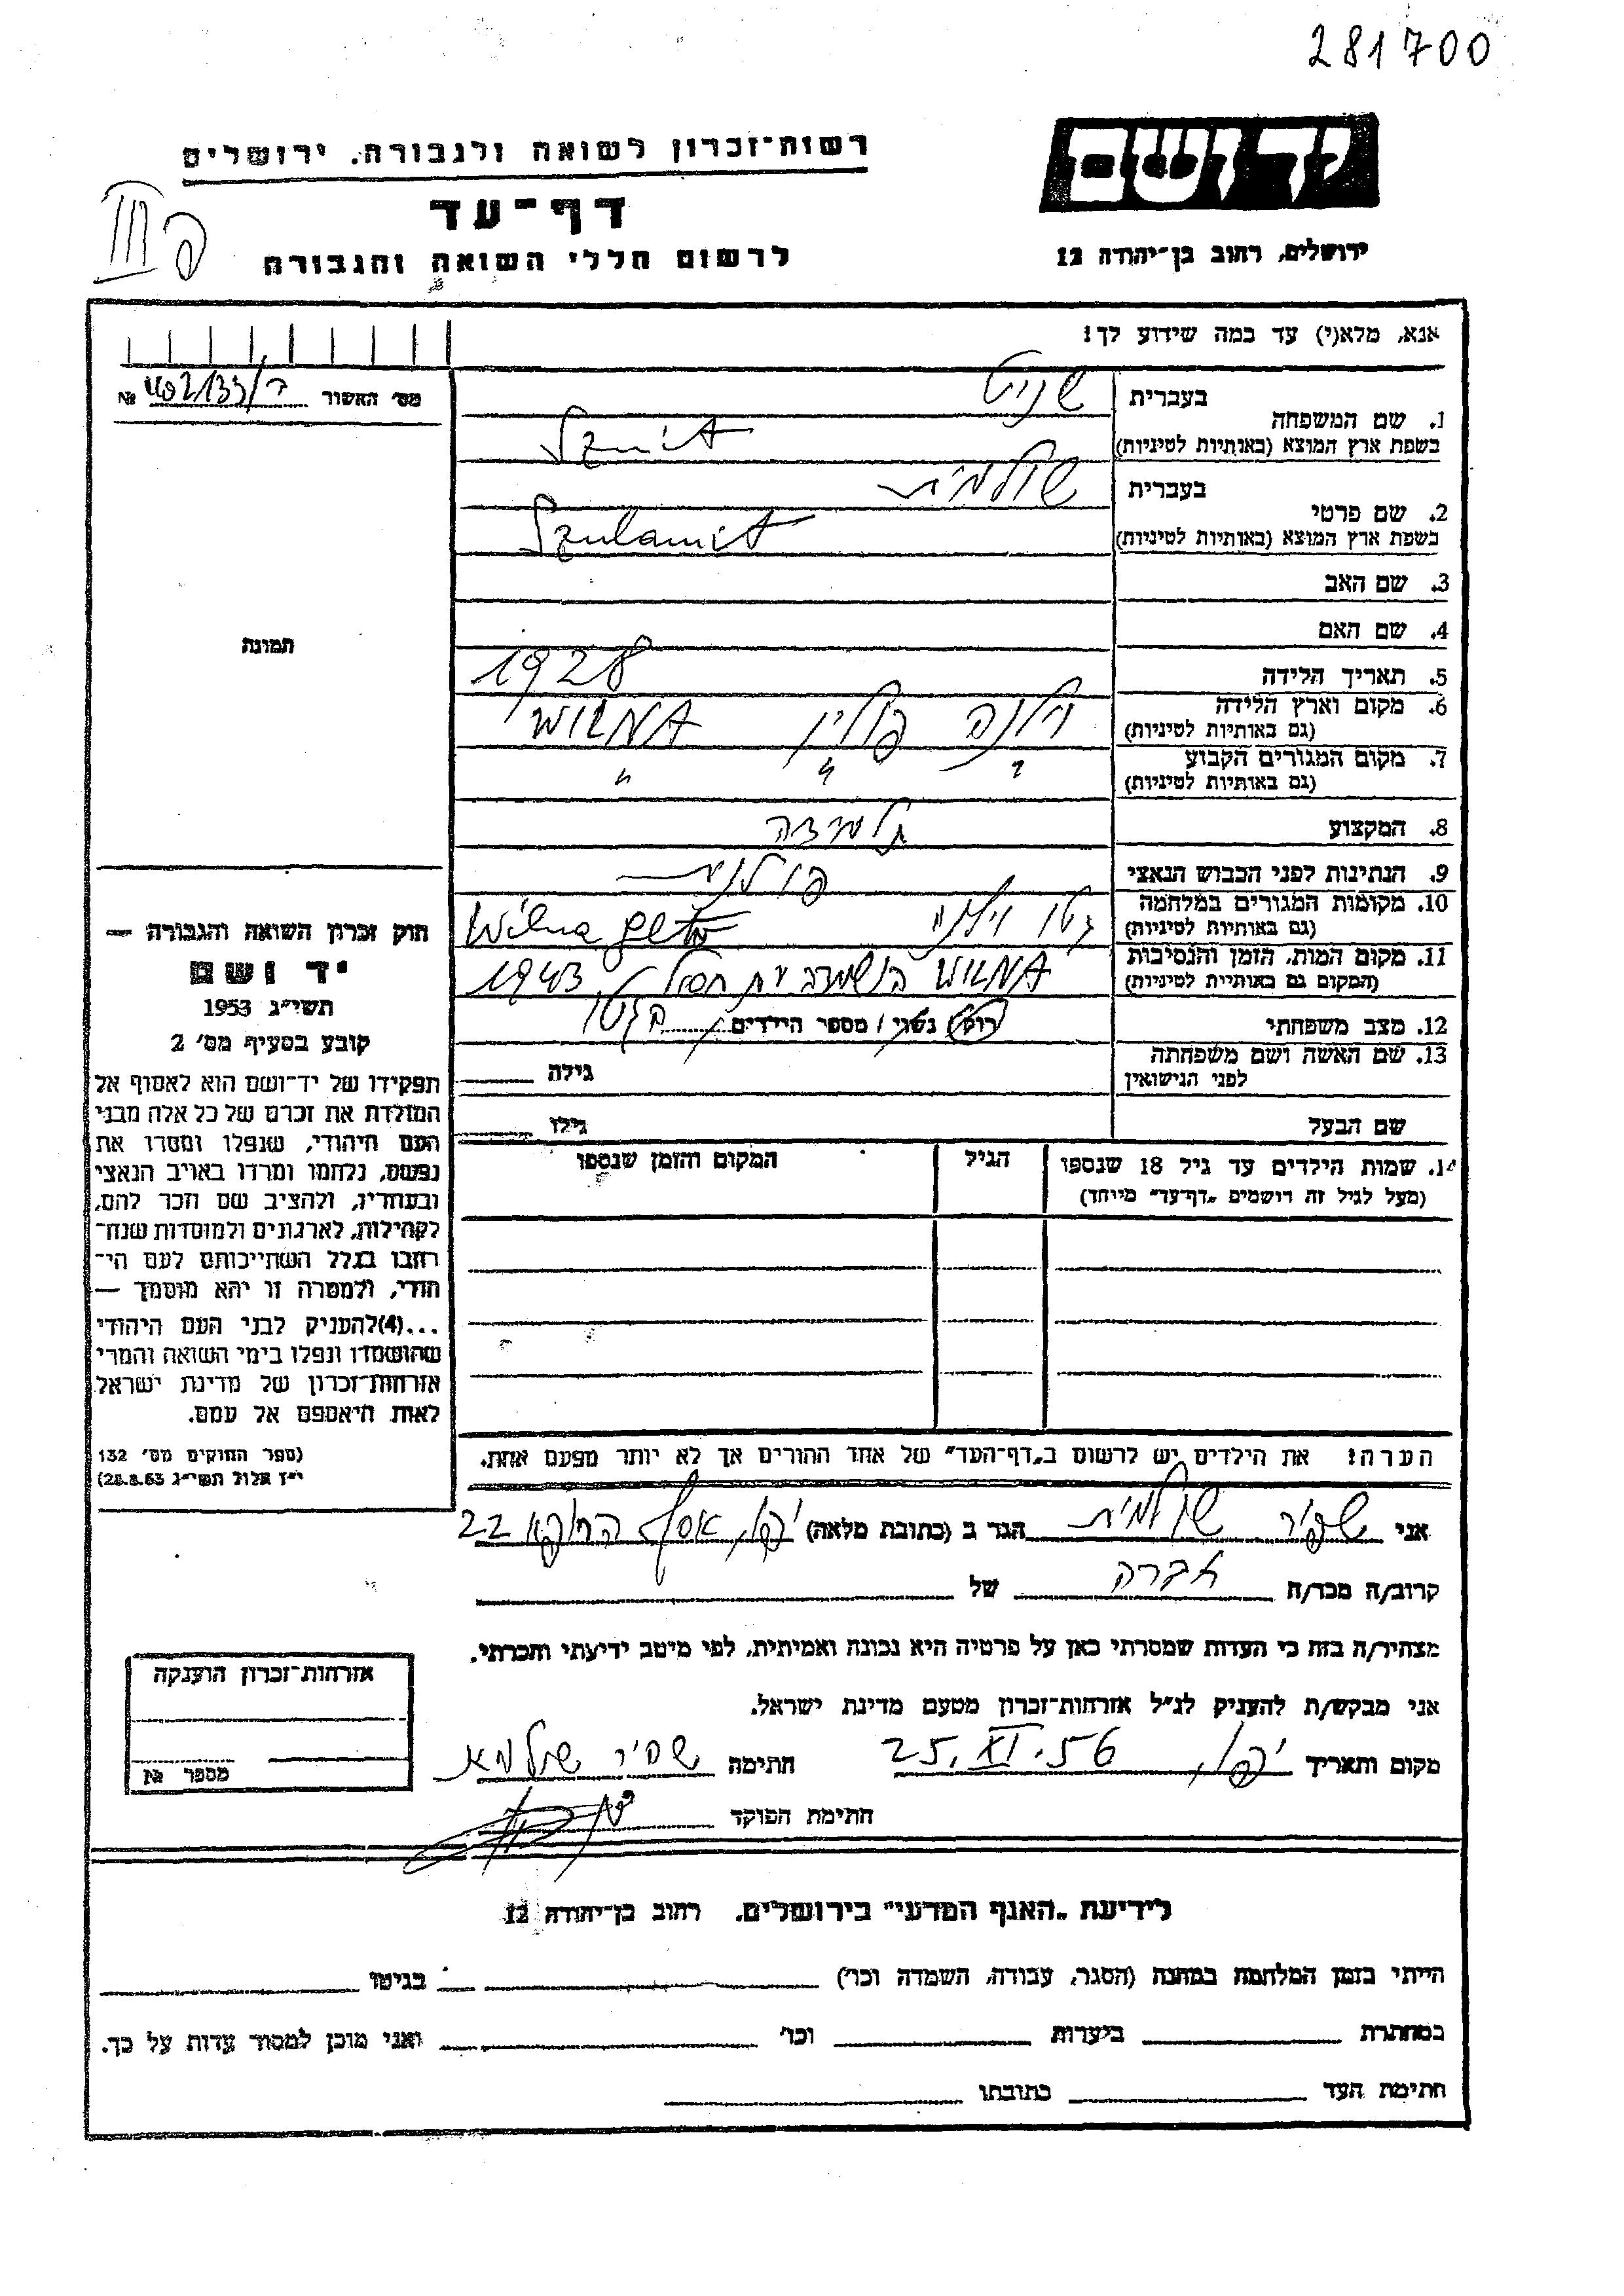 281700
יד ושם
ירושלים, רחוב בן־יהודה 12
רשות־זכרון לשואה ולגבורה, ירושלים
דף־עד
לרשום חללי השואה והגבורה
אנא, מלא(י) עד כמה שידוע לך!
מס׳ האשור №
1. שם המשפחה
בעברית
שניט
בשפת ארץ המוצא (באותיות לטיניות)
Sznit
2. שם פרטי
בעברית
שולמית
בשפת ארץ המוצא (באותיות לטיניות)
Szulamit
3. שם האב
4. שם האם
5. תאריך הלידה
1928
6. מקום וארץ הלידה
(גם באותיות לטיניות)
וילנה פולין WILNA
7. מקום המגורים הקבוע
(גם באותיות לטיניות)
" " "
8. המקצוע
תלמידה
9. הנתינות לפני הכבוש הנאצי
פולנית
10. מקומות המגורים במלחמה
(גם באותיות לטיניות)
גטו וילנה Wilna geto
11. מקום המות, הזמן והנסיבות
(המקום גם באותיות לטיניות)
WILNA 1943
12. מצב משפחתי
רווק / נשוי / מספר הילדים
13. שם האשה ושם משפחתה
לפני הנישואין
גילה
שם הבעל
גילו
14. שמות הילדים עד גיל 18 שנספו
(מעל לגיל זה רושמים „דף־עד" מיוחד)
הגיל
המקום והזמן שנספו
תמונה
חוק זכרון השואה והגבורה —
יד ושם
תשי״ג 1953
קובע בסעיף מס׳ 2
תפקידו של יד־ושם הוא לאסוף אל
המולדת את זכרם של כל אלה מבני
העם היהודי, שנפלו ומסרו את
נפשם, נלחמו ומרדו באויב הנאצי
ובעוזריו, ולהציב שם וזכר להם,
לקהילות, לארגונים ולמוסדות שנח־
רבו בגלל השתייכותם לעם הי־
הודי, ולמטרה זו יהא מוסמך —
...(4)להעניק לבני העם היהודי
שהושמדו ונפלו בימי השואה והמרי
אזרחות־זכרון של מדינת ישראל
לאות היאספם אל עמם.
(ספר החוקים מס׳ 132
י״ז אלול תשי״ג 28.8.53)
הערה! את הילדים יש לרשום ב„דף־העד" של אחד ההורים אך לא יותר מפעם אחת.
אני שפיר שולמית הגר ב (כתובת מלאה) יפו, אסף הרופא 22
קרוב/ה מכר/ה חברה של
מצהיר/ה בזה כי העדות שמסרתי כאן על פרטיה היא נכונה ואמיתית, לפי מיטב ידיעתי והכרתי.
אני מבקש/ת להעניק לנ״ל אזרחות־זכרון מטעם מדינת ישראל.
מקום ותאריך יפו, 25.XI.56 חתימה
חתימת הפוקד
אזרחות־זכרון הוענקה
מספר №
לידיעת „האגף המדעי" בירושלים, רחוב בן־יהודה 12
הייתי בזמן המלחמה במחנה (הסגר, עבודה, השמדה וכו׳) בגיטו
במחתרת ביערות וכו׳ ואני מוכן למסור עדות על כך.
חתימת העד כתובתו